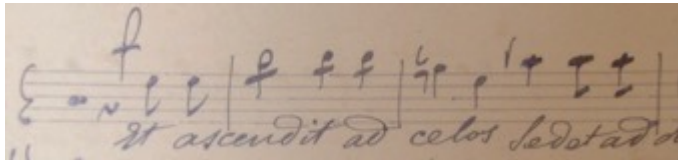 f
Et ascendit ad celos sedet ad d